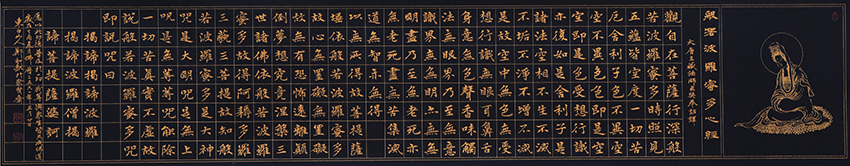 般若波羅蜜多心經
大唐三藏法師玄奘奉詔譯
觀自在菩薩行深般
若波羅蜜多時照見
五蘊皆空度一切苦
厄舍利子色不異空
空不異色色即是空
空即是色受想行識
亦復如是舍利子是
諸法空相不生不滅
不垢不淨不增不減
是故空中無色無受
想行識無眼耳鼻舌
身意無色聲香味觸
法無眼界乃至無意
識界無無明亦無無
明盡乃至無老死亦
無老死盡無苦集滅
道無智亦無得
以無所得故菩提薩
埵依般若波羅蜜多
故心無罣礙無罣礙
故無有恐怖遠離顛
倒夢想究竟涅槃三
世諸佛依般若波羅
蜜多故得阿耨多羅
三藐三菩提故知般
若波羅蜜多是大神
咒是大明咒是無上
咒是無等等咒能除
一切苦真實不虛故
說般若波羅蜜多咒
即說咒曰
揭諦揭諦波羅
揭諦波羅僧揭
諦菩提薩婆訶